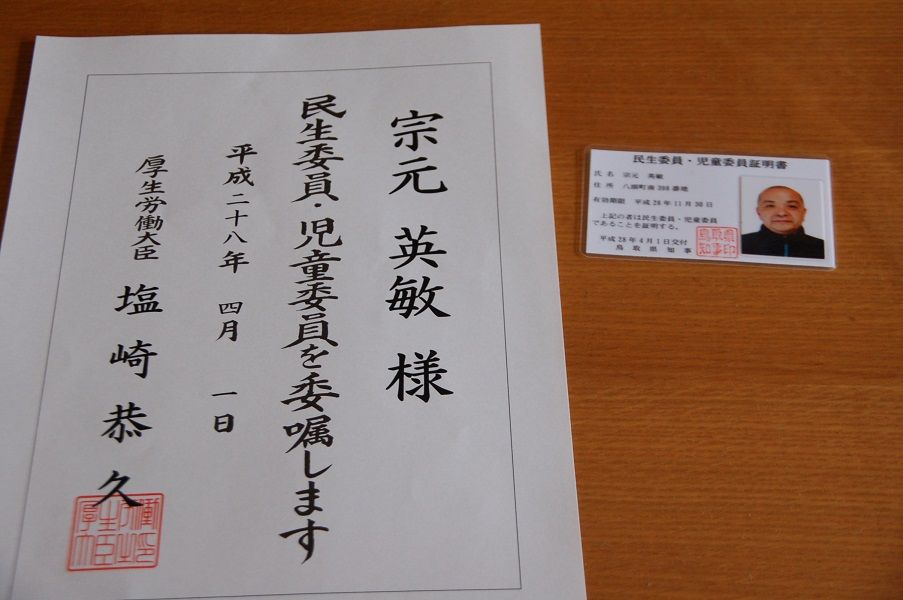 宗元 英敏 様
民生委員・児童委員を委嘱します
平成二十八年 四月 一日
厚生労働大臣 塩崎恭久
民生委員・児童委員証明書
氏 名 宗元 英敏
住 所 八頭町南208番地
有効期限 平成28年11月30日
上記の者は民生委員・児童委員
であることを証明する。
平成28年4月1日交付
鳥取県知事